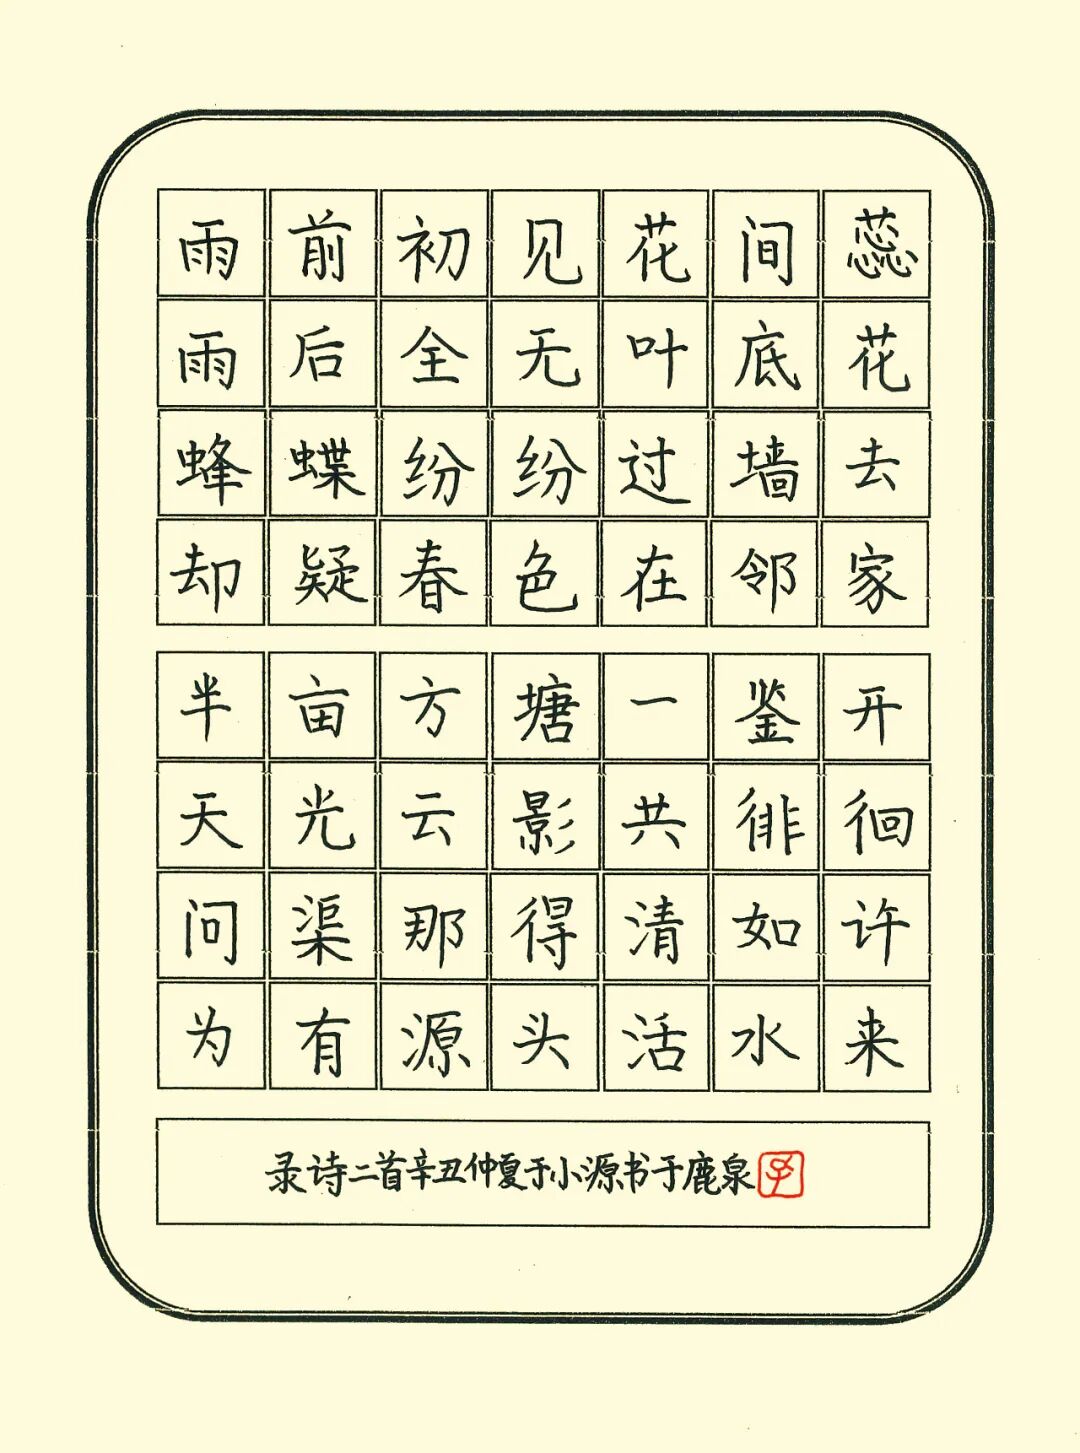 雨前初见花间蕊
雨后全无叶底花
蜂蝶纷纷过墙去
却疑春色在邻家
半亩方塘一鉴开
天光云影共徘徊
问渠那得清如许
为有源头活水来
录诗二首辛丑仲夏于小源书于鹿泉